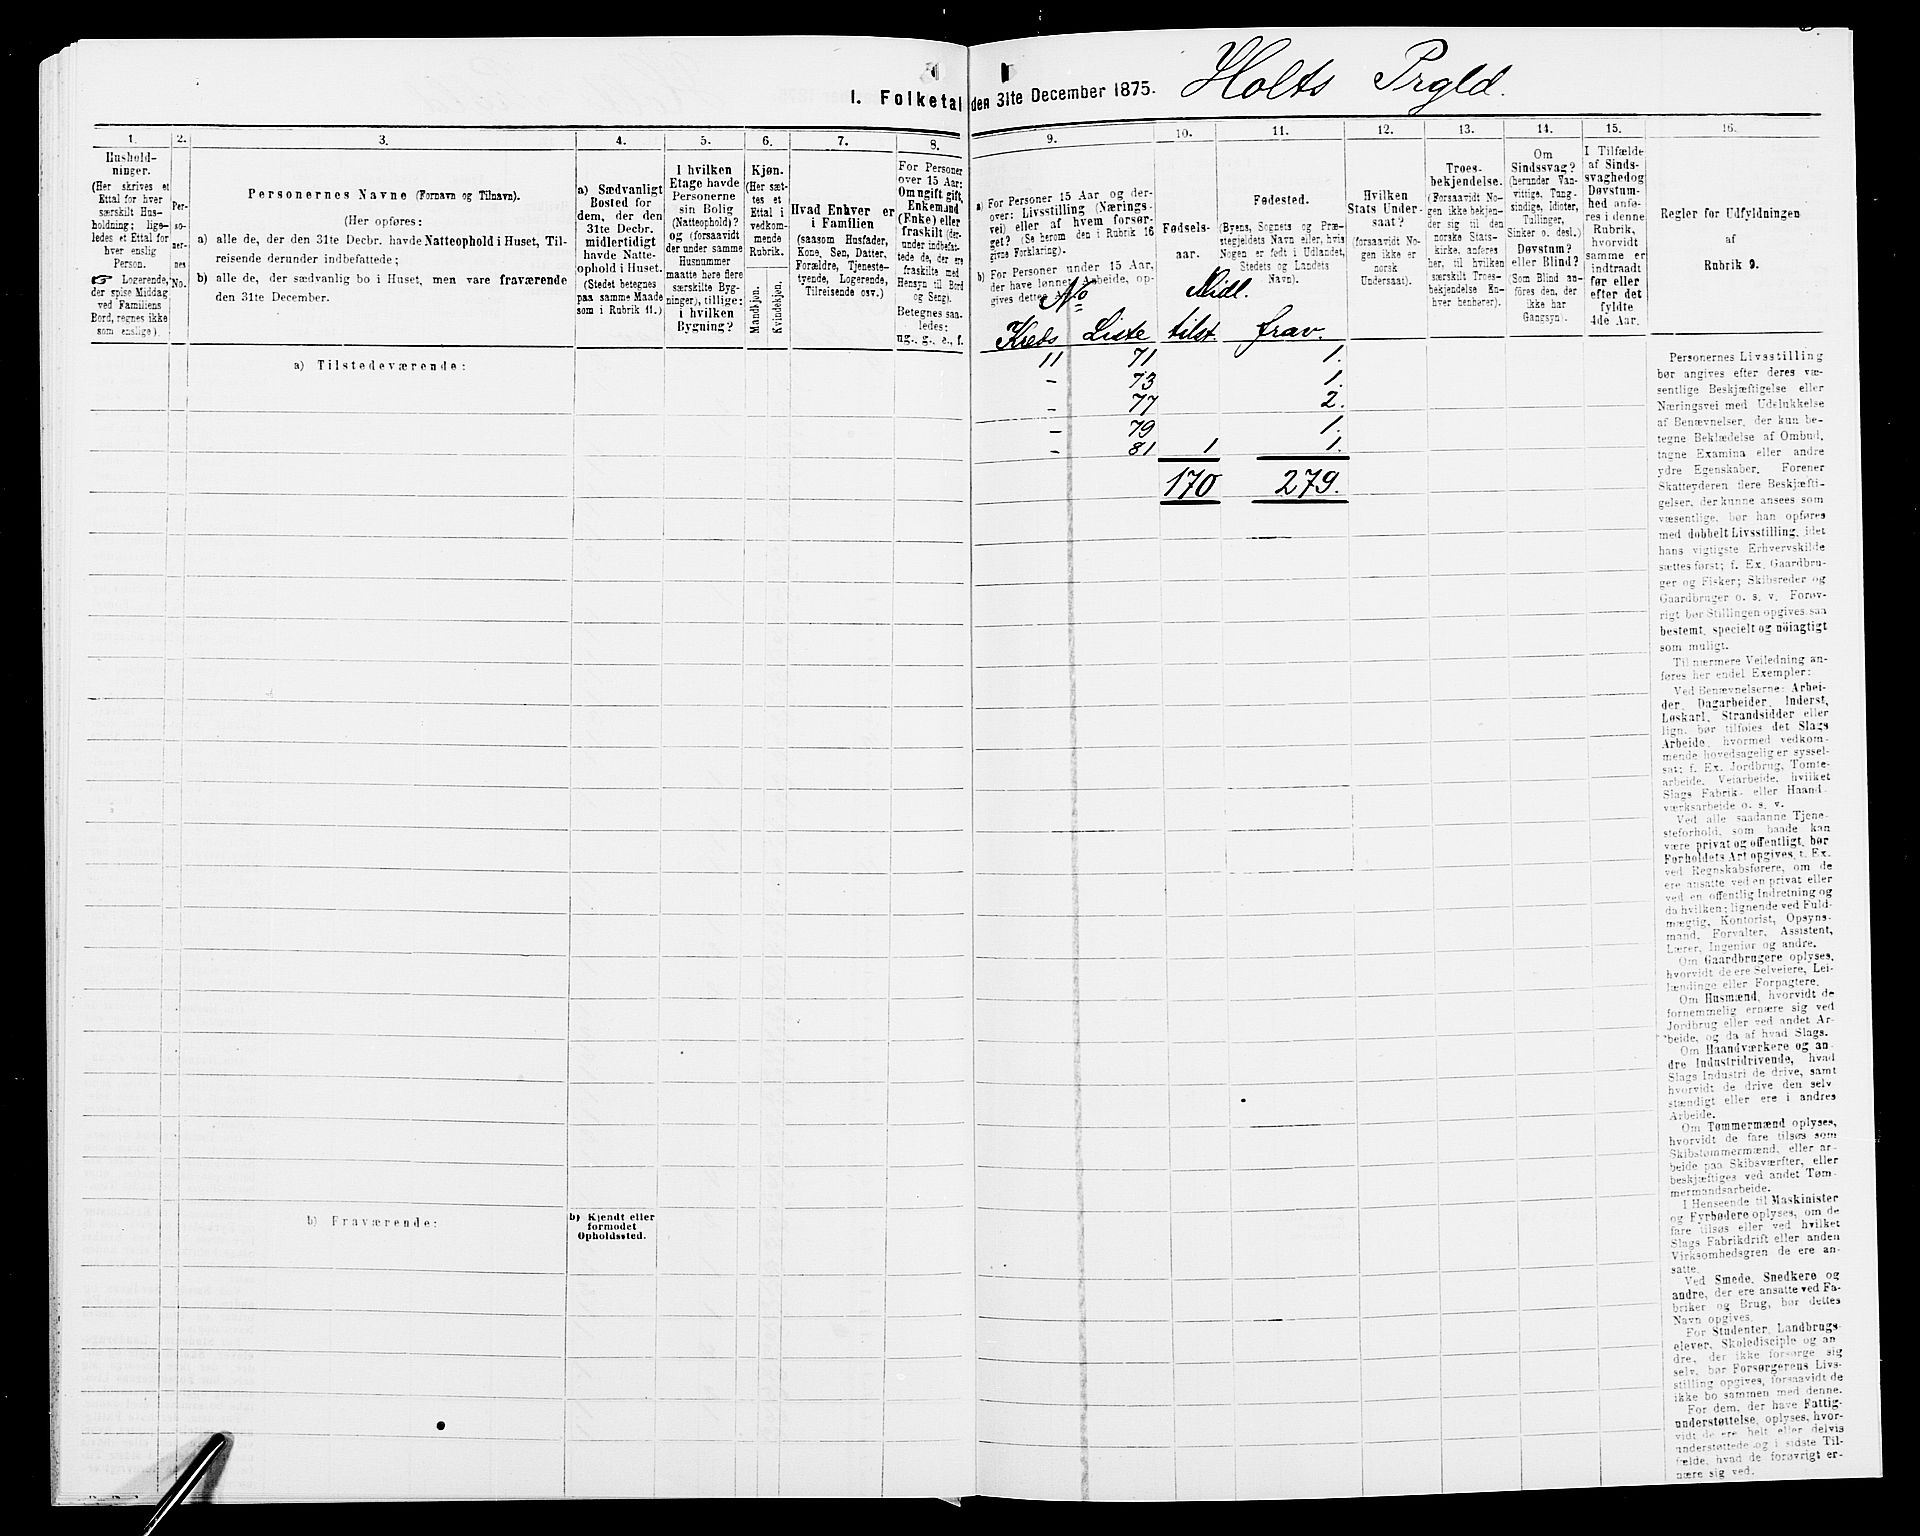 I. Folketal den 31te December 1875. Holts Prgld.
1. 2. 3. 4. 5. 6. 7. 8. 9. 10. 11. 12. 13. 14. 15. 16.
Hushold-
ninger.
(Her skrives et
Ettal for hver
særskilt Hus-
holdning; lige-
ledes et Ettal for
hver enslig
Person.
☞ Logerende,
der spise Middag
ved Familiens
Bord, regnes ikke
som enslige).
Per-
so-
ner-
nes
No.
Personernes Navne (Fornavn og Tilnavn).
(Her opføres:
a) alle de, der den 31te Decbr. havde Natteophold i Huset, Til-
reisende derunder indbefattede;
b) alle de, der sædvanlig bo i Huset, men vare fraværende
den 31te December.
a) Sædvanligt
Bosted for
dem, der den
31te Decbr.
midlertidigt
havde Natte-
ophold i Huset.
(Stedet betegnes
paa samme Maade
som i Rubrik 11.)
I hvilken
Etage havde
Personerne
sin Bolig
(Natteophold)?
og (forsaavidt
der under samme
Husnummer
maatte høre flere
særskilte Byg-
ninger), tillige:
i hvilken
Bygning?
Kjøn.
(Her sæt-
tes et
Ettal i
vedkom-
mende
Rubrik.
Mandkjøn.
Kvindekjøn.
Hvad Enhver er
i Familien
(saasom Husfader,
Kone, Søn, Datter,
Forældre, Tjeneste-
tyende, Logerende,
Tilreisende osv.)
For Personer
over 15 Aar:
Om ugift, gift,
Enkemand
(Enke) eller
fraskilt (der-
under indbefat-
tede de, der ere
fraskilte med
Hensyn til Bord
og Seng).
Betegnes saa-
ledes:
ug., g., e., f.
a) For Personer 15 Aar og der-
over: Livsstilling (Nærings-
vei) eller af hvem forsør-
get? (Se herom den i Rubrik 16
givne Forklaring).
b) For Personer under 15 Aar,
der have lønnet Arbeide, op-
gives dette
Fødsels-
aar.
Fødested.
(Byens, Sognets og Præ-
stegjeldets Navn eller, hvis
Nogen er født i Udlandet,
Stedets og Landets
Navn).
Hvilken
Stats Under-
saat?
(forsaavidt No-
gen ikke er
norsk
Undersaat).
Troes-
bekjendelse.
(Forsaavidt No-
gen ikke bekjen-
der sig til den
norske Stats-
kirke, anføres
her, til hvilken
særskilt Troes-
bekjendelse En-
hver henhører).
Om
Sindssvag?
(herunder Van-
vittige, Tung-
sindige, Idioter,
Tullinger,
Sinker o. desl.)
Døvstum?
eller Blind?
(Som Blind an-
føres den, der
ikke har
Gangsyn).
I Tilfælde
af Sinds-
svaghed og
Døvstum-
hed anfø-
res i denne
Rubrik,
hvorvidt
samme er
indtraadt
før eller
efter det
fyldte
4de Aar.
Regler for Udfyldningen
af
Rubrik 9.
No Midl.
Kreds Liste tilst. frav.
11 71 1.
– 73 1.
– 77 2.
– 79 1.
– 81 1 1.
170 279.
a) Tilstedeværende:
b) Fraværende:
b) Kjendt eller
formodet
Opholdssted.
Personernes Livsstilling
bør angives efter deres væ-
sentlige Beskjæftigelse eller
Næringsvei med Udelukkelse
af Benævnelser, der kun be-
tegne Beklædelse af Ombud,
tagne Examina eller andre
ydre Egenskaber. Forener
Skatteyderen flere Beskjæfti-
gelser, der kunne ansees som
væsentlige, bør han opføres
med dobbelt Livsstilling, idet
hans vigtigste Erhvervskilde
sættes først; f. Ex. Gaardbru-
ger og Fisker; Skibsreder og
Gaardbruger o. s. v. Forøv-
rigt bør Stillingen opgives saa
bestemt, specielt og nöiagtigt
som muligt.
Til nærmere Veiledning an-
føres her endel Exempler:
Ved Benævnelserne: Arbei-
der, Dagarbeider, Inderst,
Løskarl, Strandsidder eller
lign. bør tilføies det Slags
Arbeide, hvormed vedkom-
mende hovedsagelig er syssel-
sat; f. Ex. Jordbrug, Tomte-
arbeide, Veiarbeide, hvilket
Slags Fabrik- eller Haand-
værksarbeide o. s. v.
Ved alle saadanne Tjene-
steforhold, som baade kan
være privat og offentligt, bør
Forholdets Art opgives, t. Ex.
ved Regnskabsførere, om de
ere ansatte ved en privat eller
ved en offentlig Indretning og
da hvilken; lignende ved Fuld-
mægtig, Kontorist, Opsyns-
mand, Forvalter, Assistent,
Lærer, Ingeniør og andre.
Om Gaardbrugere oplyses,
hvorvidt de ere Selveiere, Lei-
lændinge eller Forpagtere.
Om Husmænd, hvorvidt de
fornemmelig ernære sig ved
Jordbrug eller ved andet Ar-
beide, og da af hvad Slags.
Om Haandværkere og an-
dre Industridrivende, hvad
Slags Industri de drive, samt
hvorvidt de drive den selv-
stændigt eller ere i andres
Arbeide.
Om Tømmermænd oplyses,
hvorvidt de fare tilsøs som
Skibstømmermænd, eller ar-
beide paa Skibsværfter, eller
beskjæftiges ved andet Tøm-
mermandsarbeide.
I Henseende til Maskinister
og Fyrbødere oplyses, om de
fare tilsøs eller ved hvilket
Slags Fabrikdrift eller anden
Virksomhedsgren de ere an-
satte.
Ved Smede, Snedkere og
andre, der ere ansatte ved Fa-
briker og Brug, bør dettes
Navn opgives.
For Studenter, Landbrugs-
elever, Skoledisciple og an-
dre, der ikke forsørge sig
selv, bør Forsørgerens Livs-
stilling opgives, forsaavidt de
ikke bo sammen med denne.
For dem, der have Fattig-
understøttelse, oplyses, hvor-
vidt de ere helt eller delvis
understøttede og i sidste Til-
fælde, hvad de forøvrigt er-
nære sig ved.